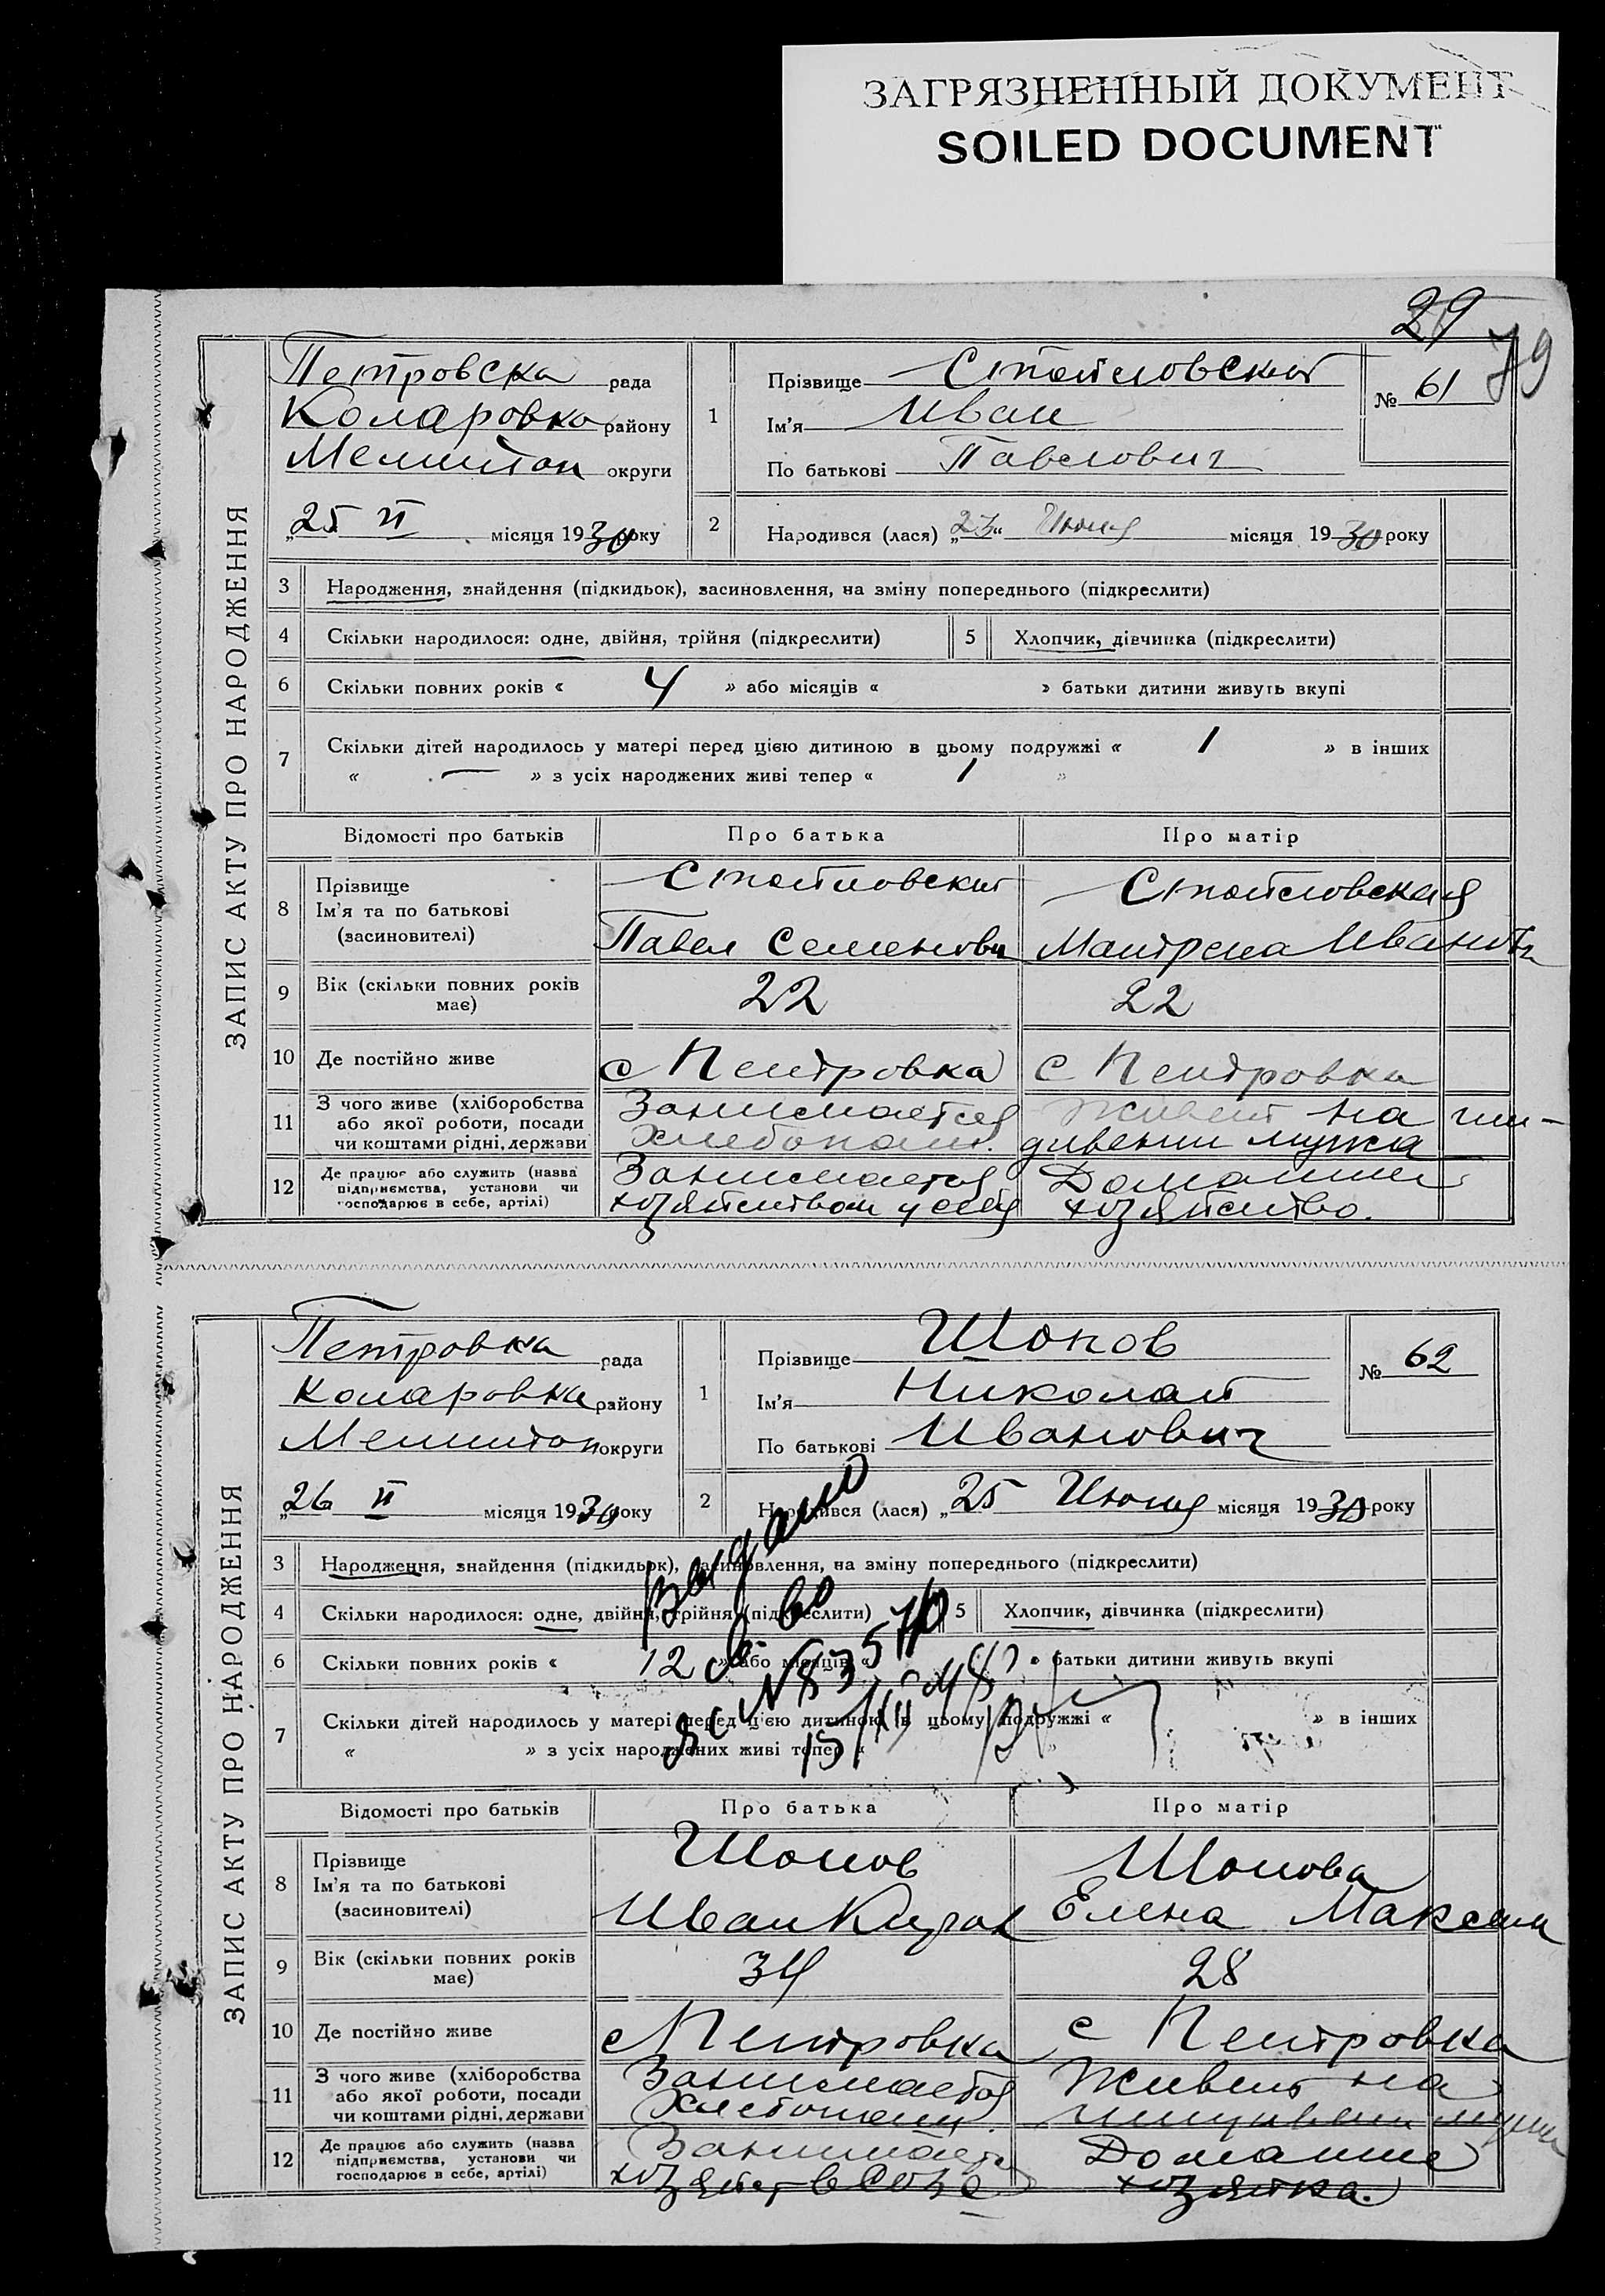 ЗАГРЯЗНЕННЫЙ ДОКУМЕНТ
SOILED DOCUMENT
29
79
ЗАПИС АКТУ ПРО НАРОДЖЕННЯ
Петровска рада
Коларовка району
Мелитоп округи
„25 VI місяця 1930 року
1
Прізвище Стойловский
Ім'я Иван
По батькові Павлович
№ 61
2 Народився (лася) „23“ Июня місяця 1930 року
3 Народження, знайдення (підкидьок), засиновлення, на зміну попереднього (підкреслити)
4 Скільки народилося: одне, двійня, трійня (підкреслити) 5 Хлопчик, дівчинка (підкреслити)
6 Скільки повних років « 4 » або місяців « » батьки дитини живуть вкупі
7 Скільки дітей народилось у матері перед цією дитиною в цьому подружжі « 1 » в інших
« — » з усіх народжених живі тепер « 1 »
Відомості про батьків Про батька Про матір
8 Прізвище
Ім'я та по батькові
(засиновителі)
Стойловский
Павел Семенови
Стойловская
Матрена Ивановн
9 Вік (скільки повних років
має)
22 22
10 Де постійно живе с Петровка с Петровка
11 З чого живе (хліборобства
або якої роботи, посади
чи коштами рідні, держави
Занимается
Хлебопаш.
Живет на ижи-
дивении мужа
12 Де працює або служить (назва
підприємства, установи чи
господарює в себе, артілі)
Занимается
хозяйством у себя
Домашнее
хозяйство.
ЗАПИС АКТУ ПРО НАРОДЖЕННЯ
Петровка рада
Коларовка району
Мелитоп округи
„26 VI місяця 1930 року
1
Прізвище Шопов
Ім'я Николай
По батькові Иванович
№ 62
2 Народився (лася) „25 Июня місяця 1930 року
3 Народження, знайдення (підкидьок), засиновлення, на зміну попереднього (підкреслити)
4 Скільки народилося: одне, двійня, трійня (підкреслити) 5 Хлопчик, дівчинка (підкреслити)
6 Скільки повних років « 12 » або місяців « » батьки дитини живуть вкупі
7 Скільки дітей народилось у матері перед цією дитиною в цьому подружжі « » в інших
« » з усіх народжених живі тепер «
Выдано
с-во
Відомості про батьків Про батька Про матір
8 Прізвище
Ім'я та по батькові
(засиновителі)
Шопов
Иван
Шопова
Елена Максим
9 Вік (скільки повних років
має)
34 28
10 Де постійно живе с Петровка с Петровка
11 З чого живе (хліборобства
або якої роботи, посади
чи коштами рідні, держави
Занимается
Хлебопаш.
Живет на
мужа
12 Де працює або служить (назва
підприємства, установи чи
господарює в себе, артілі)
Занимается
Домашнее
хозяйка.